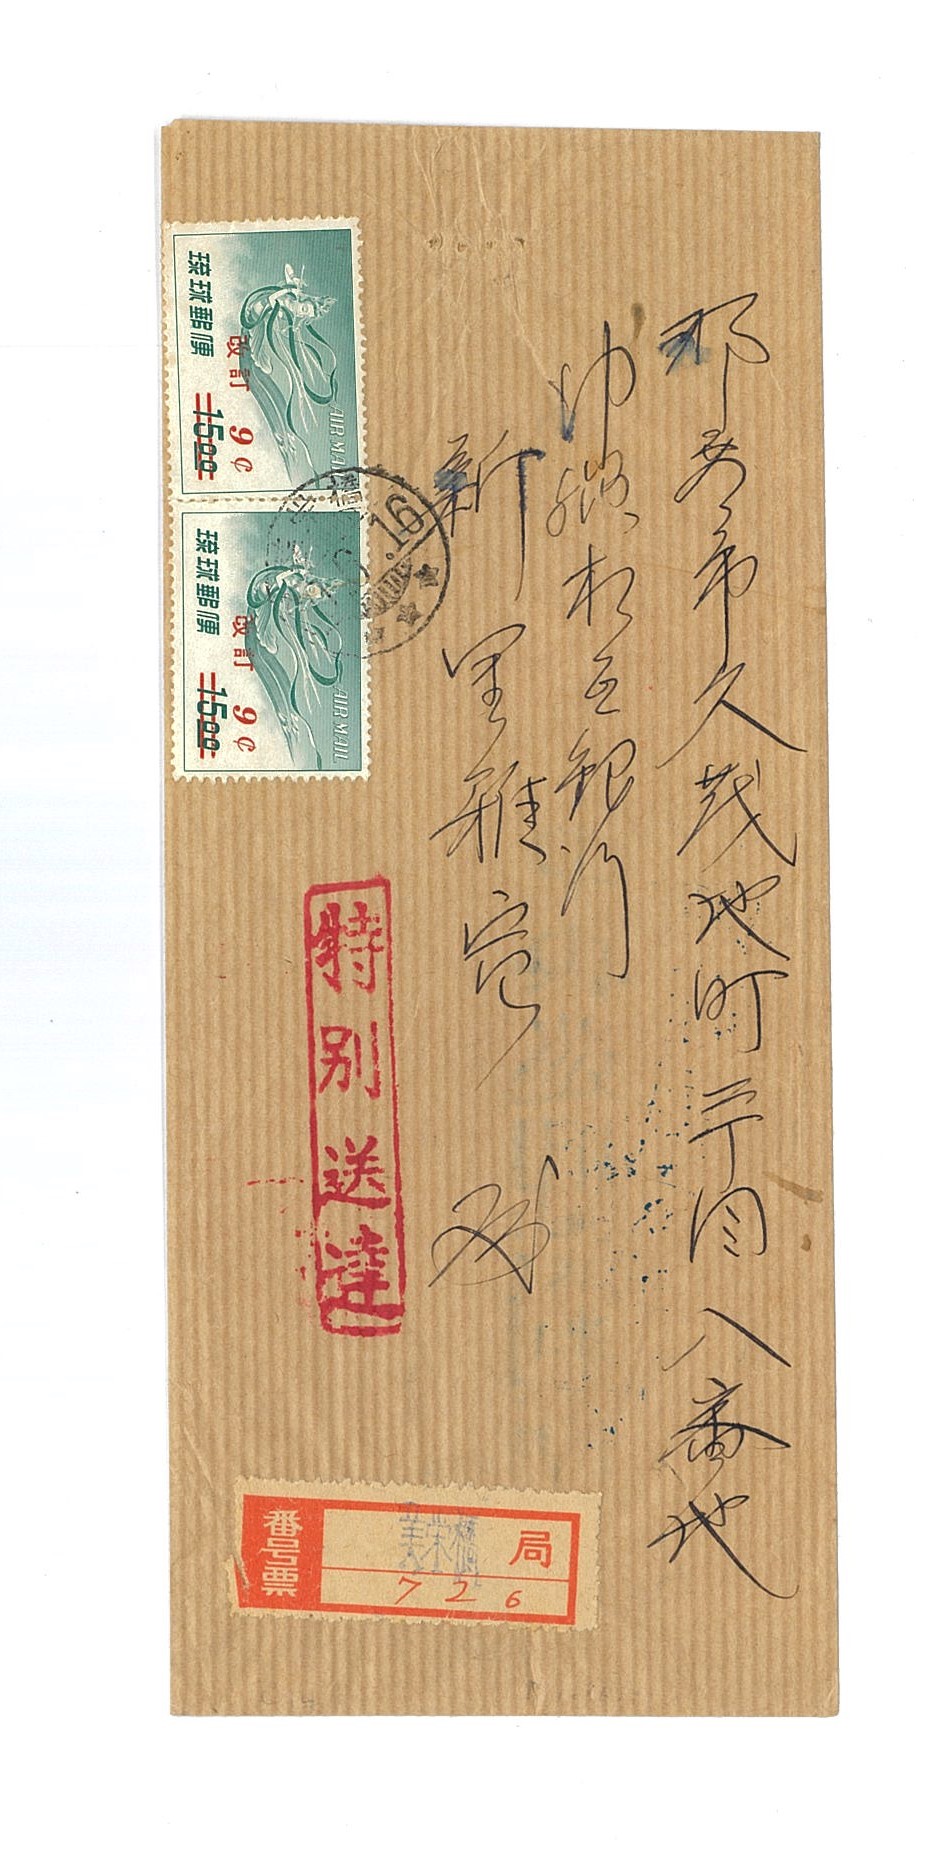 那覇市久茂地町二丁目八番地
沖縄相互銀行
新里雅寛 殿
琉球郵便
改訂
9¢
15.00
AIR MAIL
琉球郵便
改訂
9¢
15.00
AIR MAIL
特別送達
番号票
美栄橋 局
726